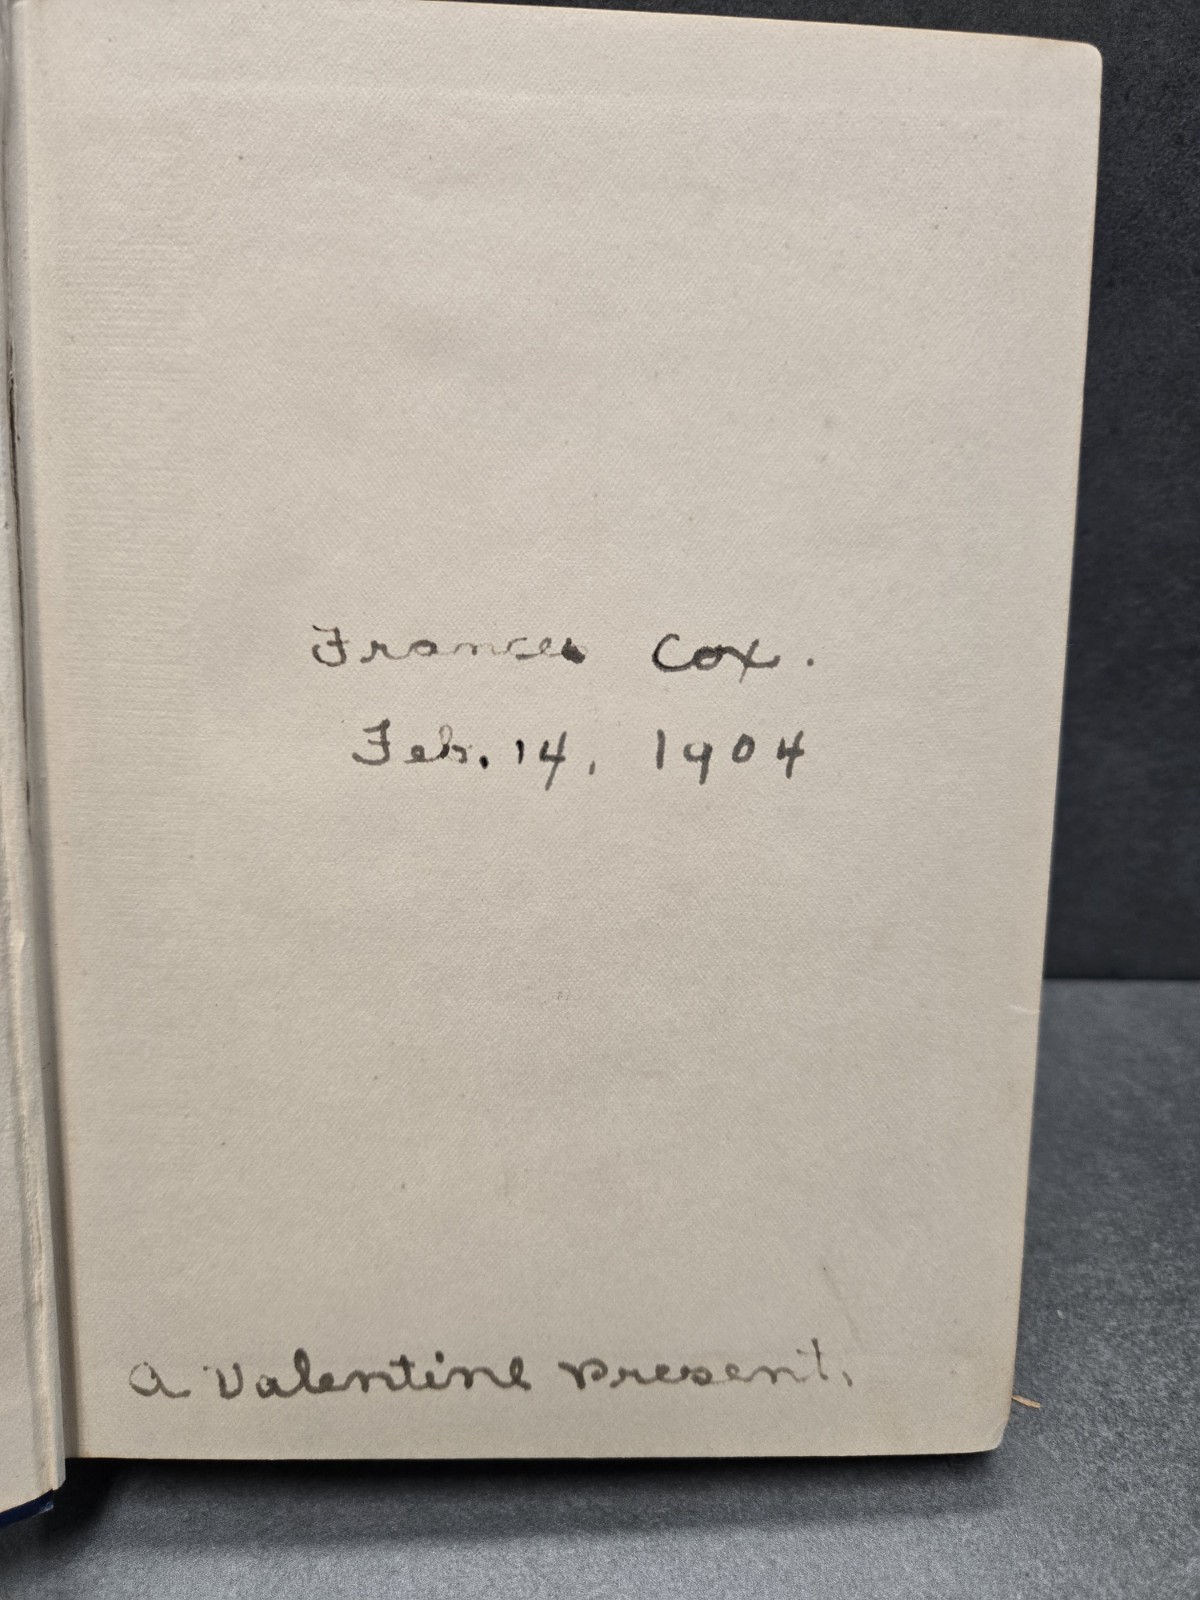 Frances Cox.
Feb. 14, 1904
A Valentine present.